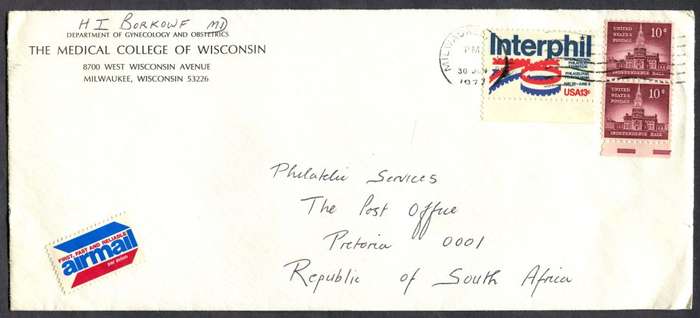 H I Borkowf MD
DEPARTMENT OF GYNECOLOGY AND OBSTETRICS
THE MEDICAL COLLEGE OF WISCONSIN
8700 WEST WISCONSIN AVENUE
MILWAUKEE, WISCONSIN 53226
MILWAU
PM
30
1977
Interphil
USA 13c
UNITED STATES POSTAGE
10¢
INDEPENDENCE HALL
UNITED STATES POSTAGE
10¢
INDEPENDENCE HALL
Philatelic Services
The Post Office
Pretoria 0001
Republic of South Africa
FIRST, FAST AND RELIABLE
airmail
par avion